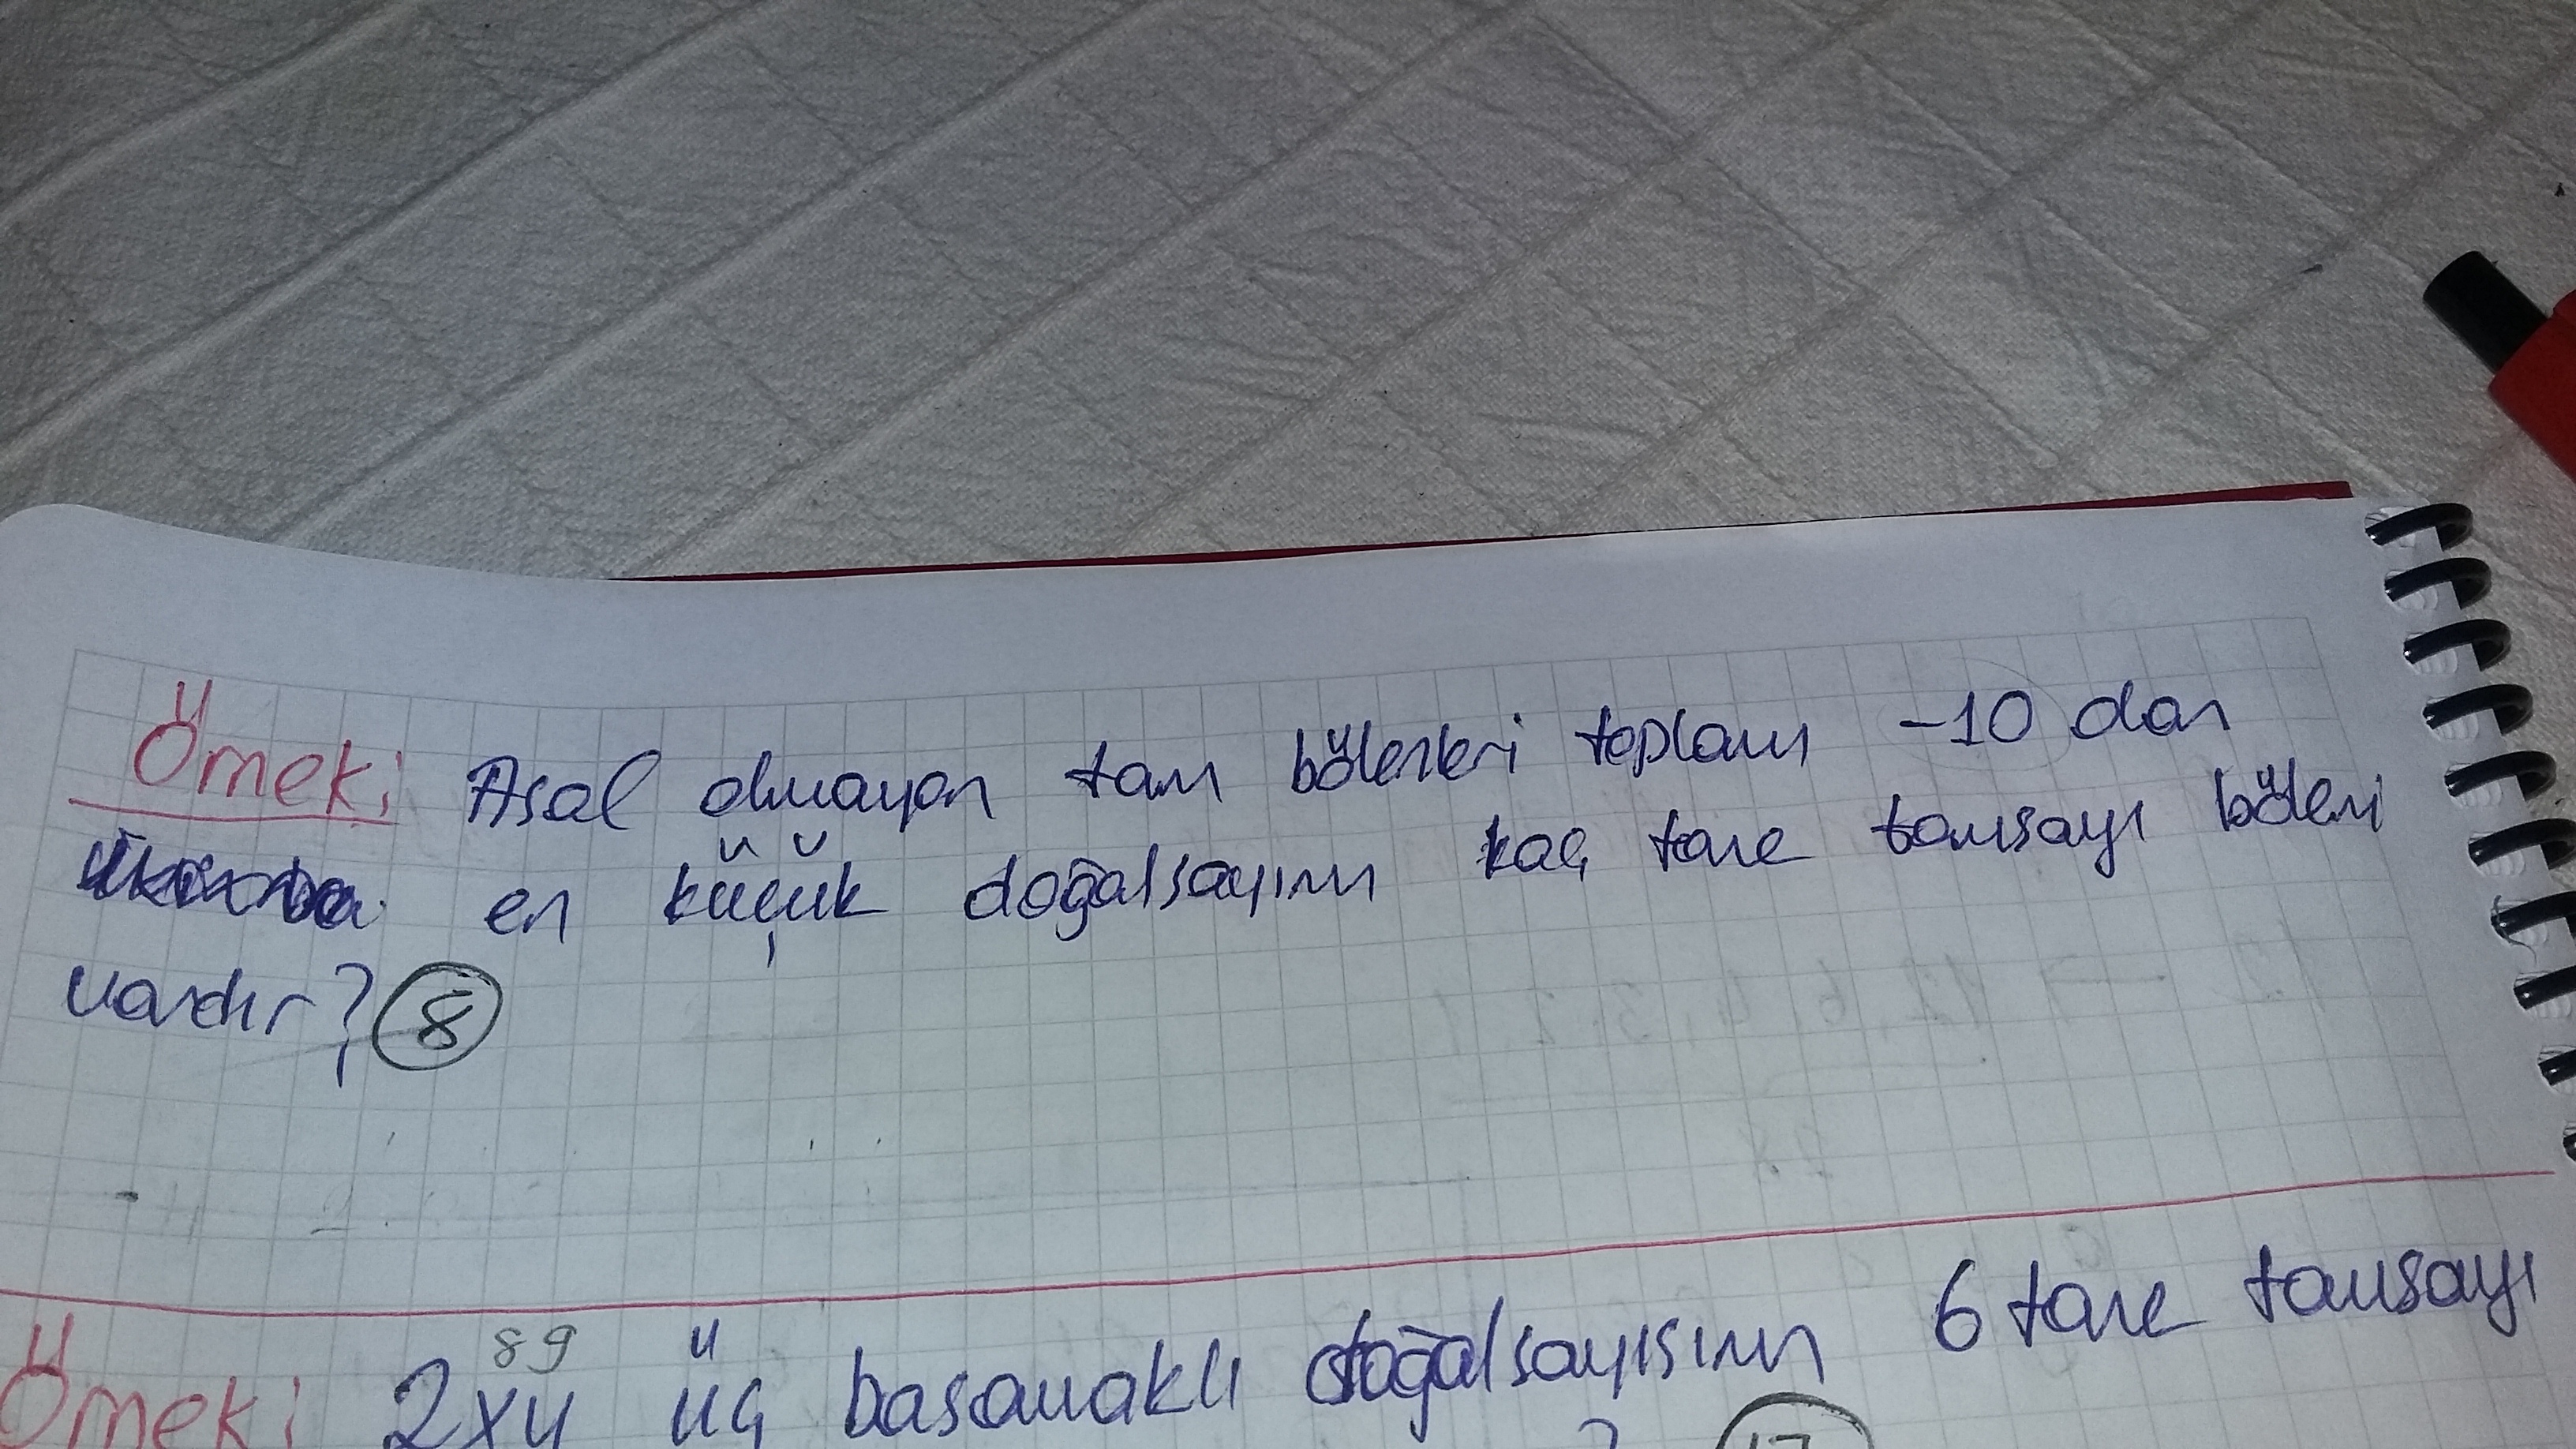 Örnek: Asal olmayan tam bölenleri toplamı -10 dan
en küçük doğalsayının kaç tane tamsayı böleni
vardır? 8
89
Örnek: 2xy üç basamaklı doğalsayısının 6 tane tamsayı
? 17